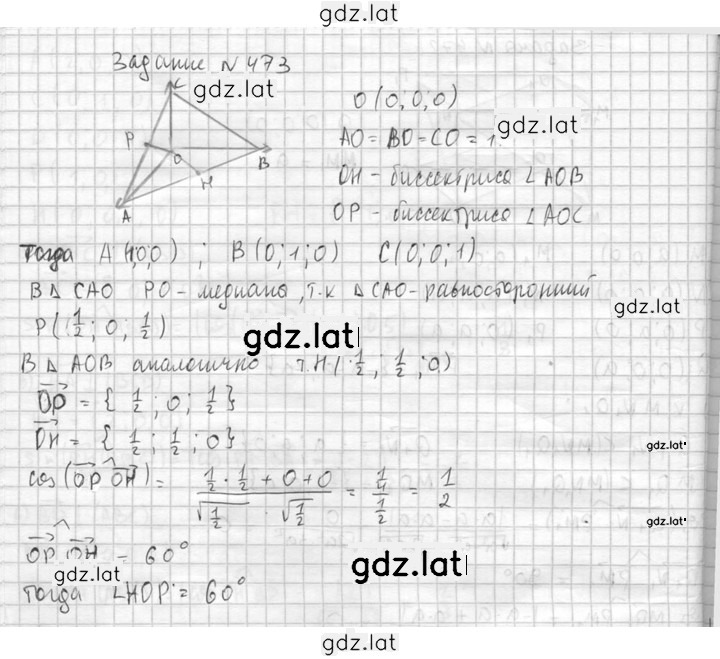 gdz.lat
Задание №473
gdz.lat
O(0;0;0)
AO=BO=CO=1.
gdz.lat
OH - биссектриса ∠AOB
OP - биссектриса ∠AOC
P
O
B
H
A
Тогда A(1;0;0); B(0;1;0) C(0;0;1)
В Δ CAO PO - медиана, т.к Δ CAO - равносторонний
gdz.lat
P(1/2; 0; 1/2)
gdz.lat
В Δ AOB аналогично т.H(1/2; 1/2; 0)
OP = {1/2; 0; 1/2}
OH = {1/2; 1/2; 0}
gdz.lat
cos(OP^OH) = (1/2 · 1/2 + 0 + 0)/(√1/2 · √1/2) = (1/4)/(1/2) = 1/2
gdz.lat
OP^OH = 60°
gdz.lat
gdz.lat
Тогда ∠HOP = 60°
gdz.lat